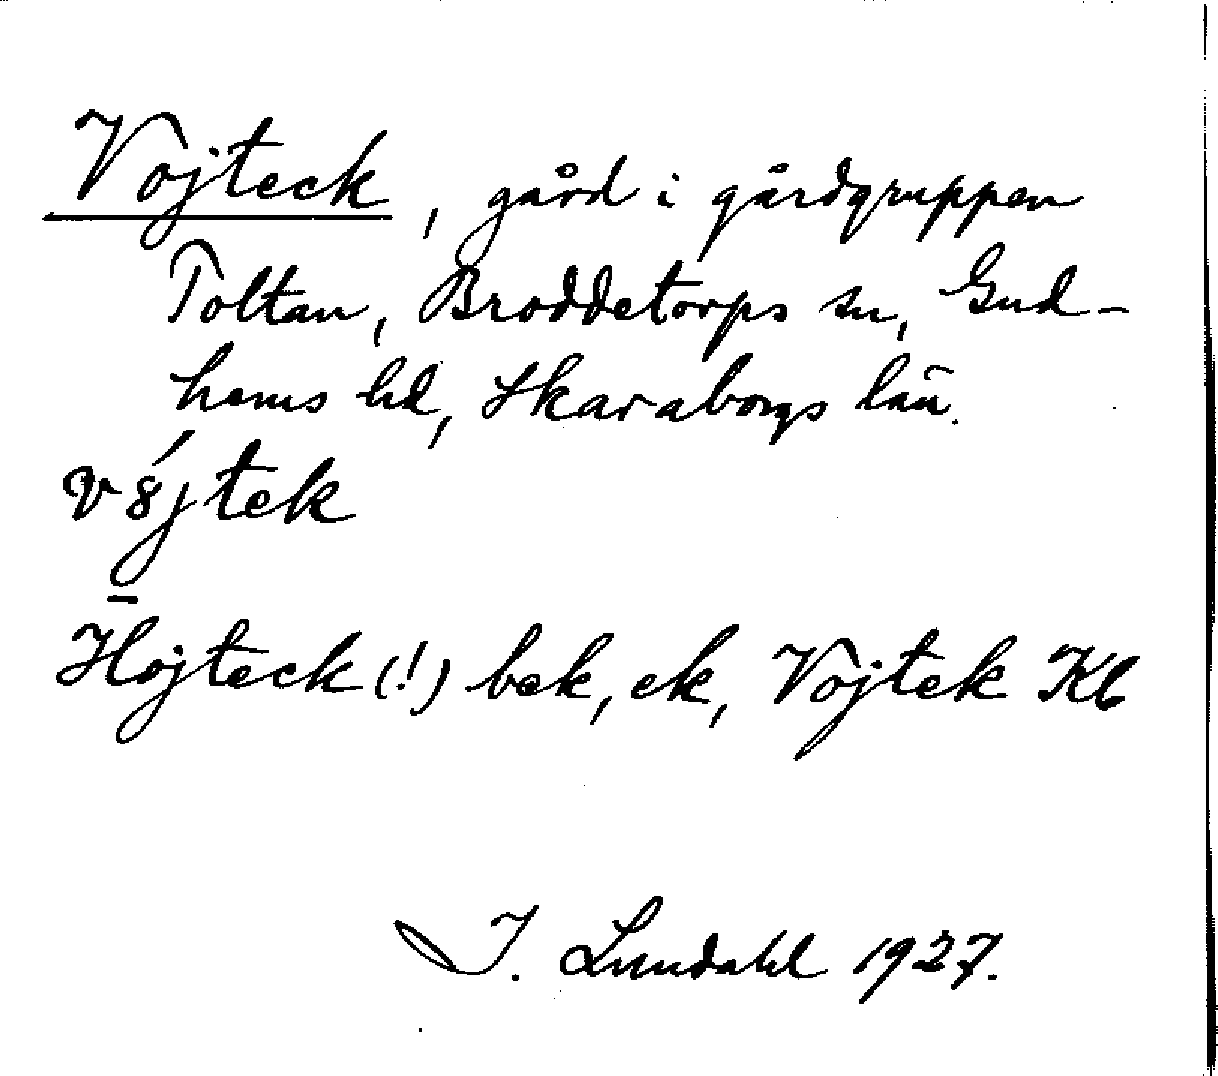 Vojteck, gård i gårdgruppen
Toltan, Broddetorps sn, Gud-
hems hd, Skaraborgs län.
v8́jtek
Hojteck (!) bek, ek, Vojtek Kb
I. Lundahl 1927.